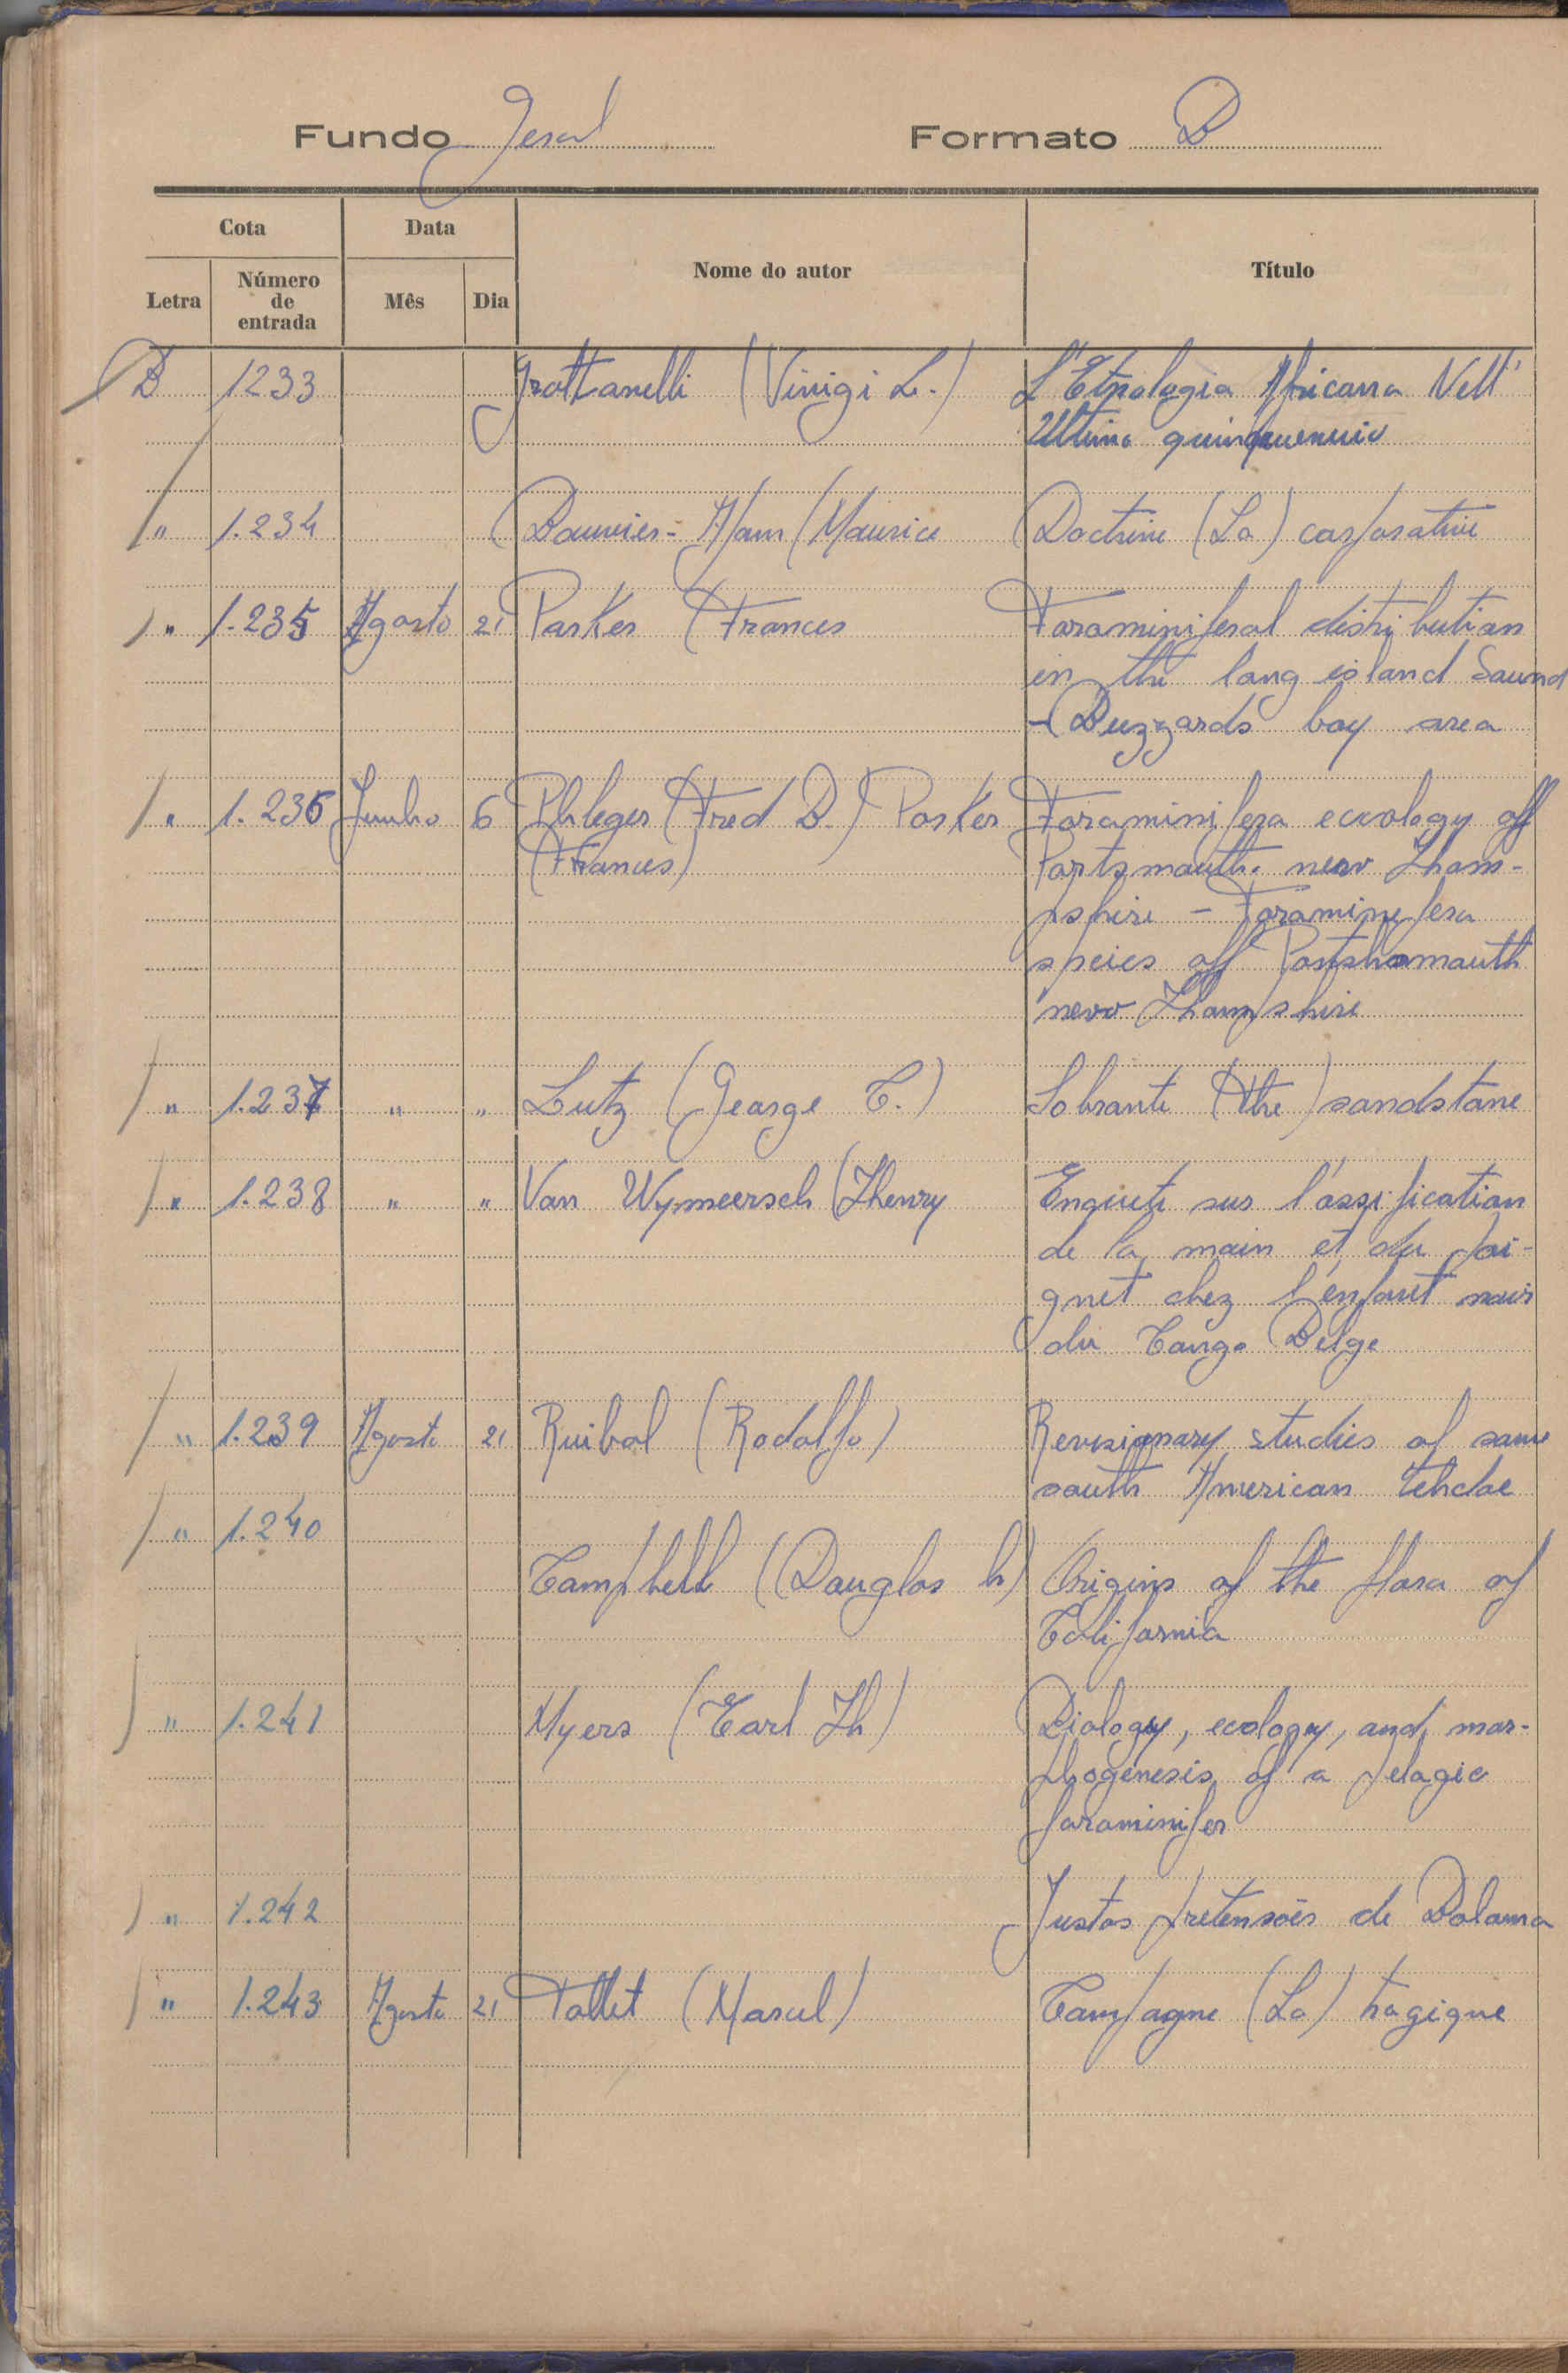 Fundo Geral Formato B
Cota Data Nome do autor Título
Letra Número de entrada Mês Dia
B 1233 Grottanelli (Vinigi L.) L'Etnologia Africana Nell'
Ultimo quinquennio
" 1.234 Bouvier-Ajam (Maurice Doctrine (La) corporative
" 1.235 Agosto 21 Parker (Frances Foraminiferal distribution
in the long island Sound
- Buzzards bay area
" 1.236 Junho 6 Phleger (Fred B.) Parker Foraminifera eccology off
(Frances) Portsmouth. new Ham-
pshire - Foraminifera
speies off Portshomouth
new Hampshire
" 1.237 " " Lutz (George C.) Sobrante (the) sandstone
" 1.238 " " Van Wymeersch (Henry Enquete sur l'ossification
de la main et du poi-
gnet chez l'enfant noir
du Congo Belge
" 1.239 Agosto 21 Ruibal (Rodolfo) Revisionary studies of some
south American tehdae
" 1.240
Campbell (Douglas h) Origins of the flora of
California
" 1.241 Myers (Earl H) Biology, ecology, and mor-
phogenesis of a pelagic
foraminifer
" 1.242 Justas pretensões de Bolama
" 1.243 Agosto 21 Tollet (Marcel) Campagne (La) tragique